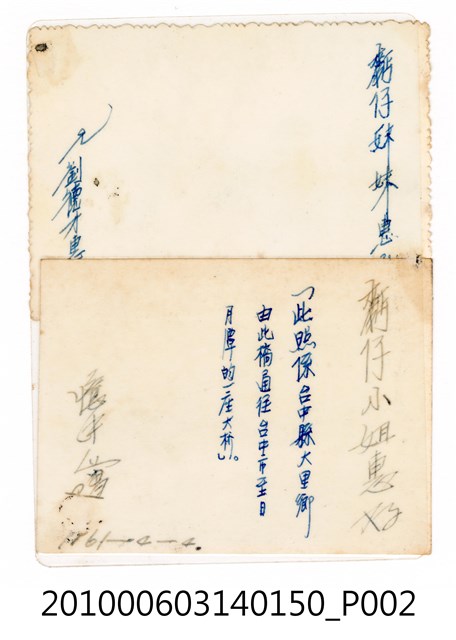 仔妹妹惠
劉德才
仔小姐惠
「此照係台中縣大里鄉
由此橋通往台中市至日
月潭的一座大桥」。
1961-4-4.
201000603140150_P002